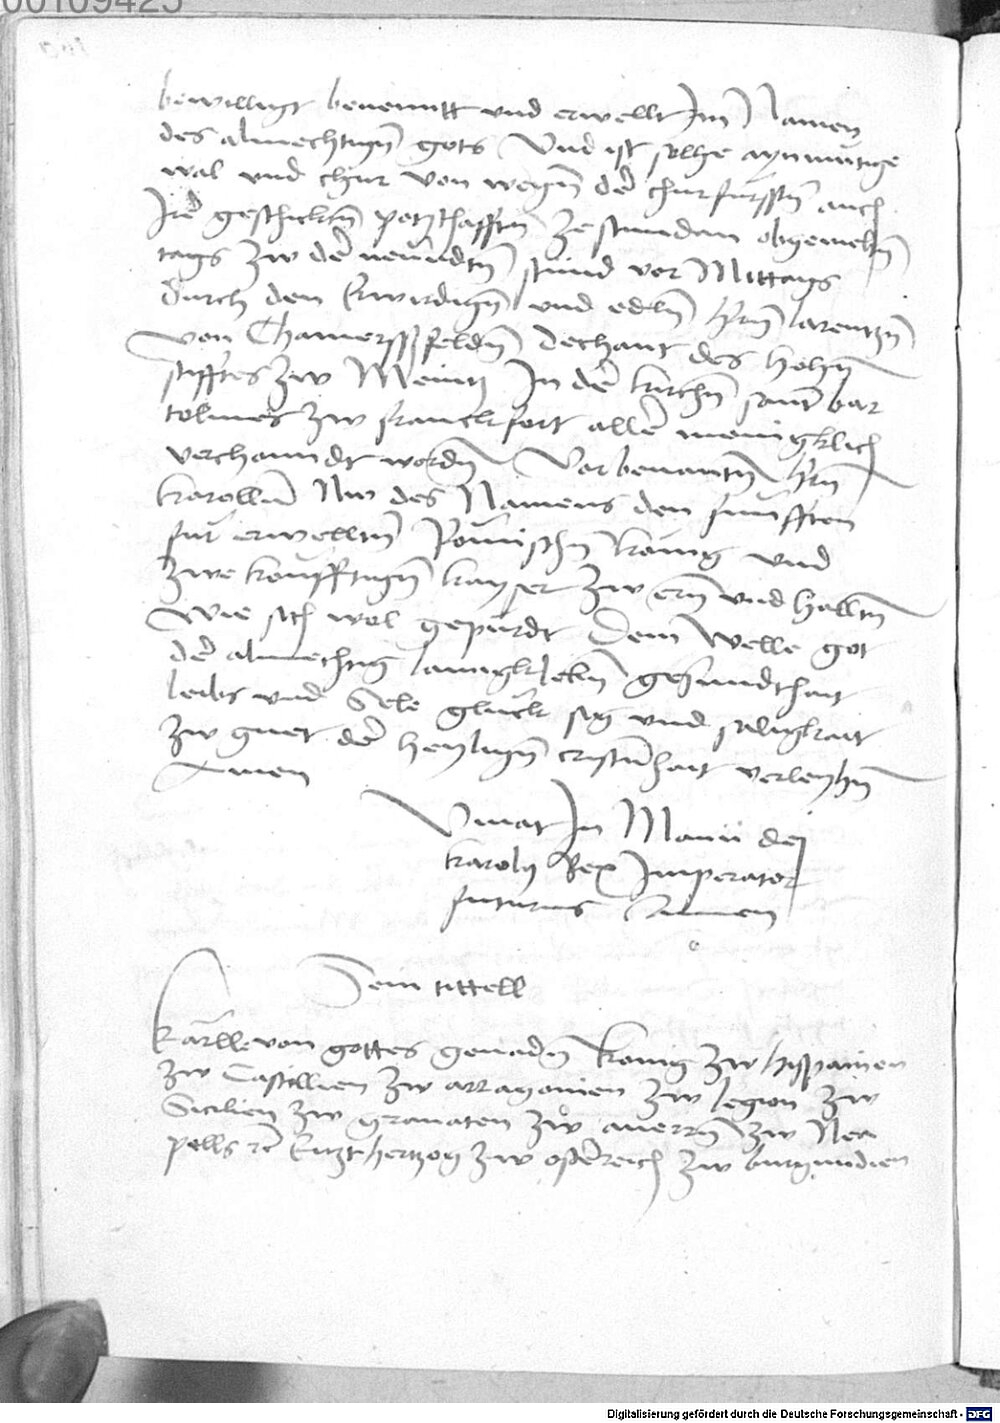 00109425
bewilligt benenntt und erwellt Im Namen
des almechtign gots Und ist solhe aynmutige
wal und chur von wegn der churfurstn auch
Irer geschicktn potschafftn ze stundan obgemeltn
tags zw der neundtn stund vor Mittags
durch den Erwirdign und edln hrn larentzn
von Chamerssfeldn dechant des hohn
stifftes zw Meintz In der kirchn sant bar
tolmes zw franckfort aller menigklich
verchanndt wordn Vorbenantn hrn
karollu Nw des Namens den funfften
fur erwelltn Romischn konig und
zwe konfftign kayser zw ern und halltn
wie sich wol gepurdt Dem welle got
der almechtig lanngklebn gesundthait
leibs und Sele gluck sig und saligkait
zw guet der heylign cristnhait verleyhn
Amen
Vivat In Manu dei
karoly Rex Imperator
futurus Amen
Sein tittell
karlle von gottes genadn konig zw hispanien
zw Castillien zw arragonien zw legion zw
Sicilien zw granaten zw nauerrn zw Nea
polls rc Ertzhertzog zw osterreich zw burgundien
Digitalisierung gefördert durch die Deutsche Forschungsgemeinschaft - DFG